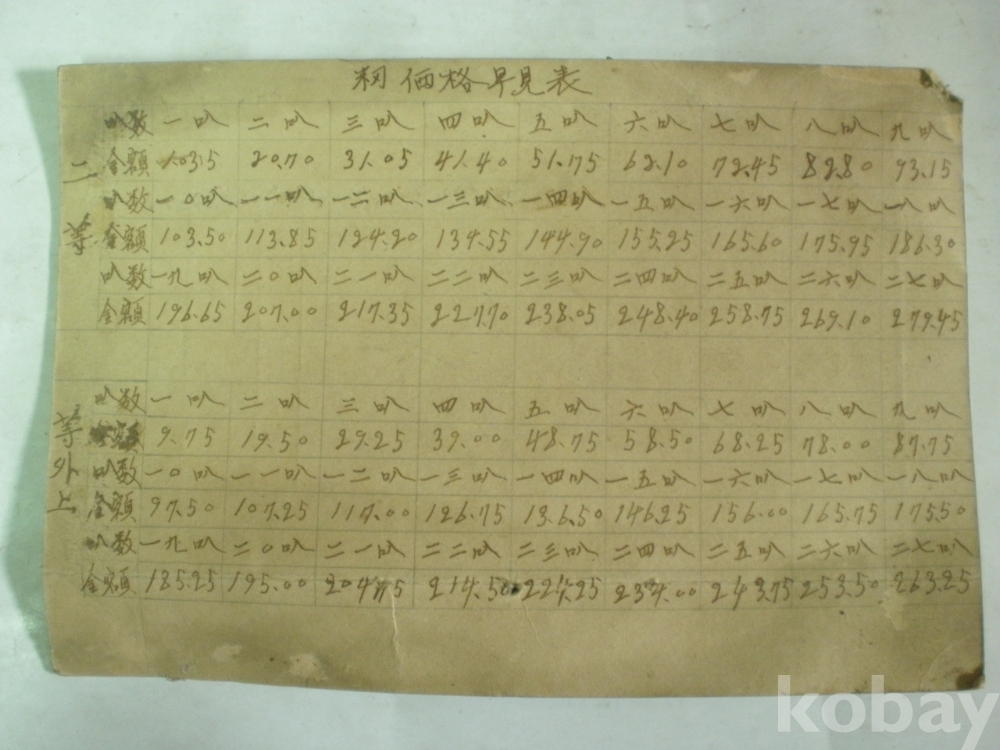 籾価格早見表
二等
叺数 一叺 二叺 三叺 四叺 五叺 六叺 七叺 八叺 九叺
金額 10.35 20.70 31.05 41.40 51.75 62.10 72.45 82.80 93.15
叺数 一0叺 一一叺 一二叺 一三叺 一四叺 一五叺 一六叺 一七叺 一八叺
金額 103.50 113.85 124.20 134.55 144.90 155.25 165.60 175.95 186.30
叺数 一九叺 二0叺 二一叺 二二叺 二三叺 二四叺 二五叺 二六叺 二七叺
金額 196.65 207.00 217.35 227.70 238.05 248.40 258.75 269.10 279.45
等外上
叺数 一叺 二叺 三叺 四叺 五叺 六叺 七叺 八叺 九叺
金額 9.75 19.50 29.25 39.00 48.75 58.50 68.25 78.00 87.75
叺数 一0叺 一一叺 一二叺 一三叺 一四叺 一五叺 一六叺 一七叺 一八叺
金額 97.50 107.25 117.00 126.75 136.50 146.25 156.00 165.75 175.50
叺数 一九叺 二0叺 二一叺 二二叺 二三叺 二四叺 二五叺 二六叺 二七叺
金額 185.25 195.00 204.75 214.50 224.25 234.00 243.75 253.50 263.25
kobay